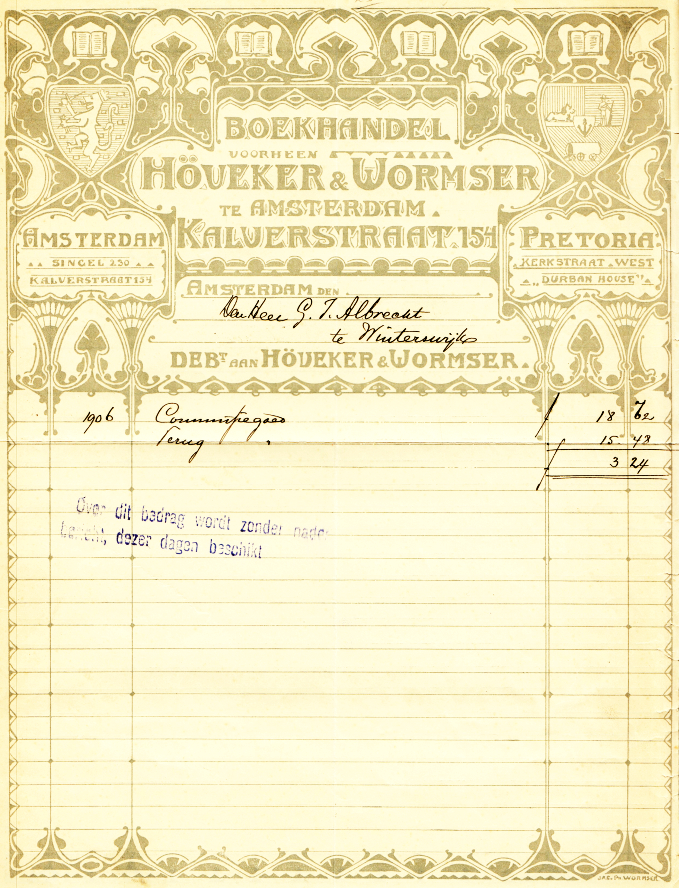 BOEKHANDEL
VOORHEEN
HÖVEKER & WORMSER
TE AMSTERDAM.
KALVERSTRAAT.154
AMSTERDAM
SINGEL 230
KALVERSTRAAT 154
PRETORIA
KERKSTRAAT. WEST
"DURBAN HOUSE"
AMSTERDAM DEN
Den Heer G. J. Albrecht
te Winterswijk
DEBT. AAN HÖVEKER & WORMSER.
1906 Commissiegoed ƒ 18 72
Terug " 15. 48
ƒ 3 24
Over dit bedrag wordt zonder nader
bericht, dezer dagen beschikt